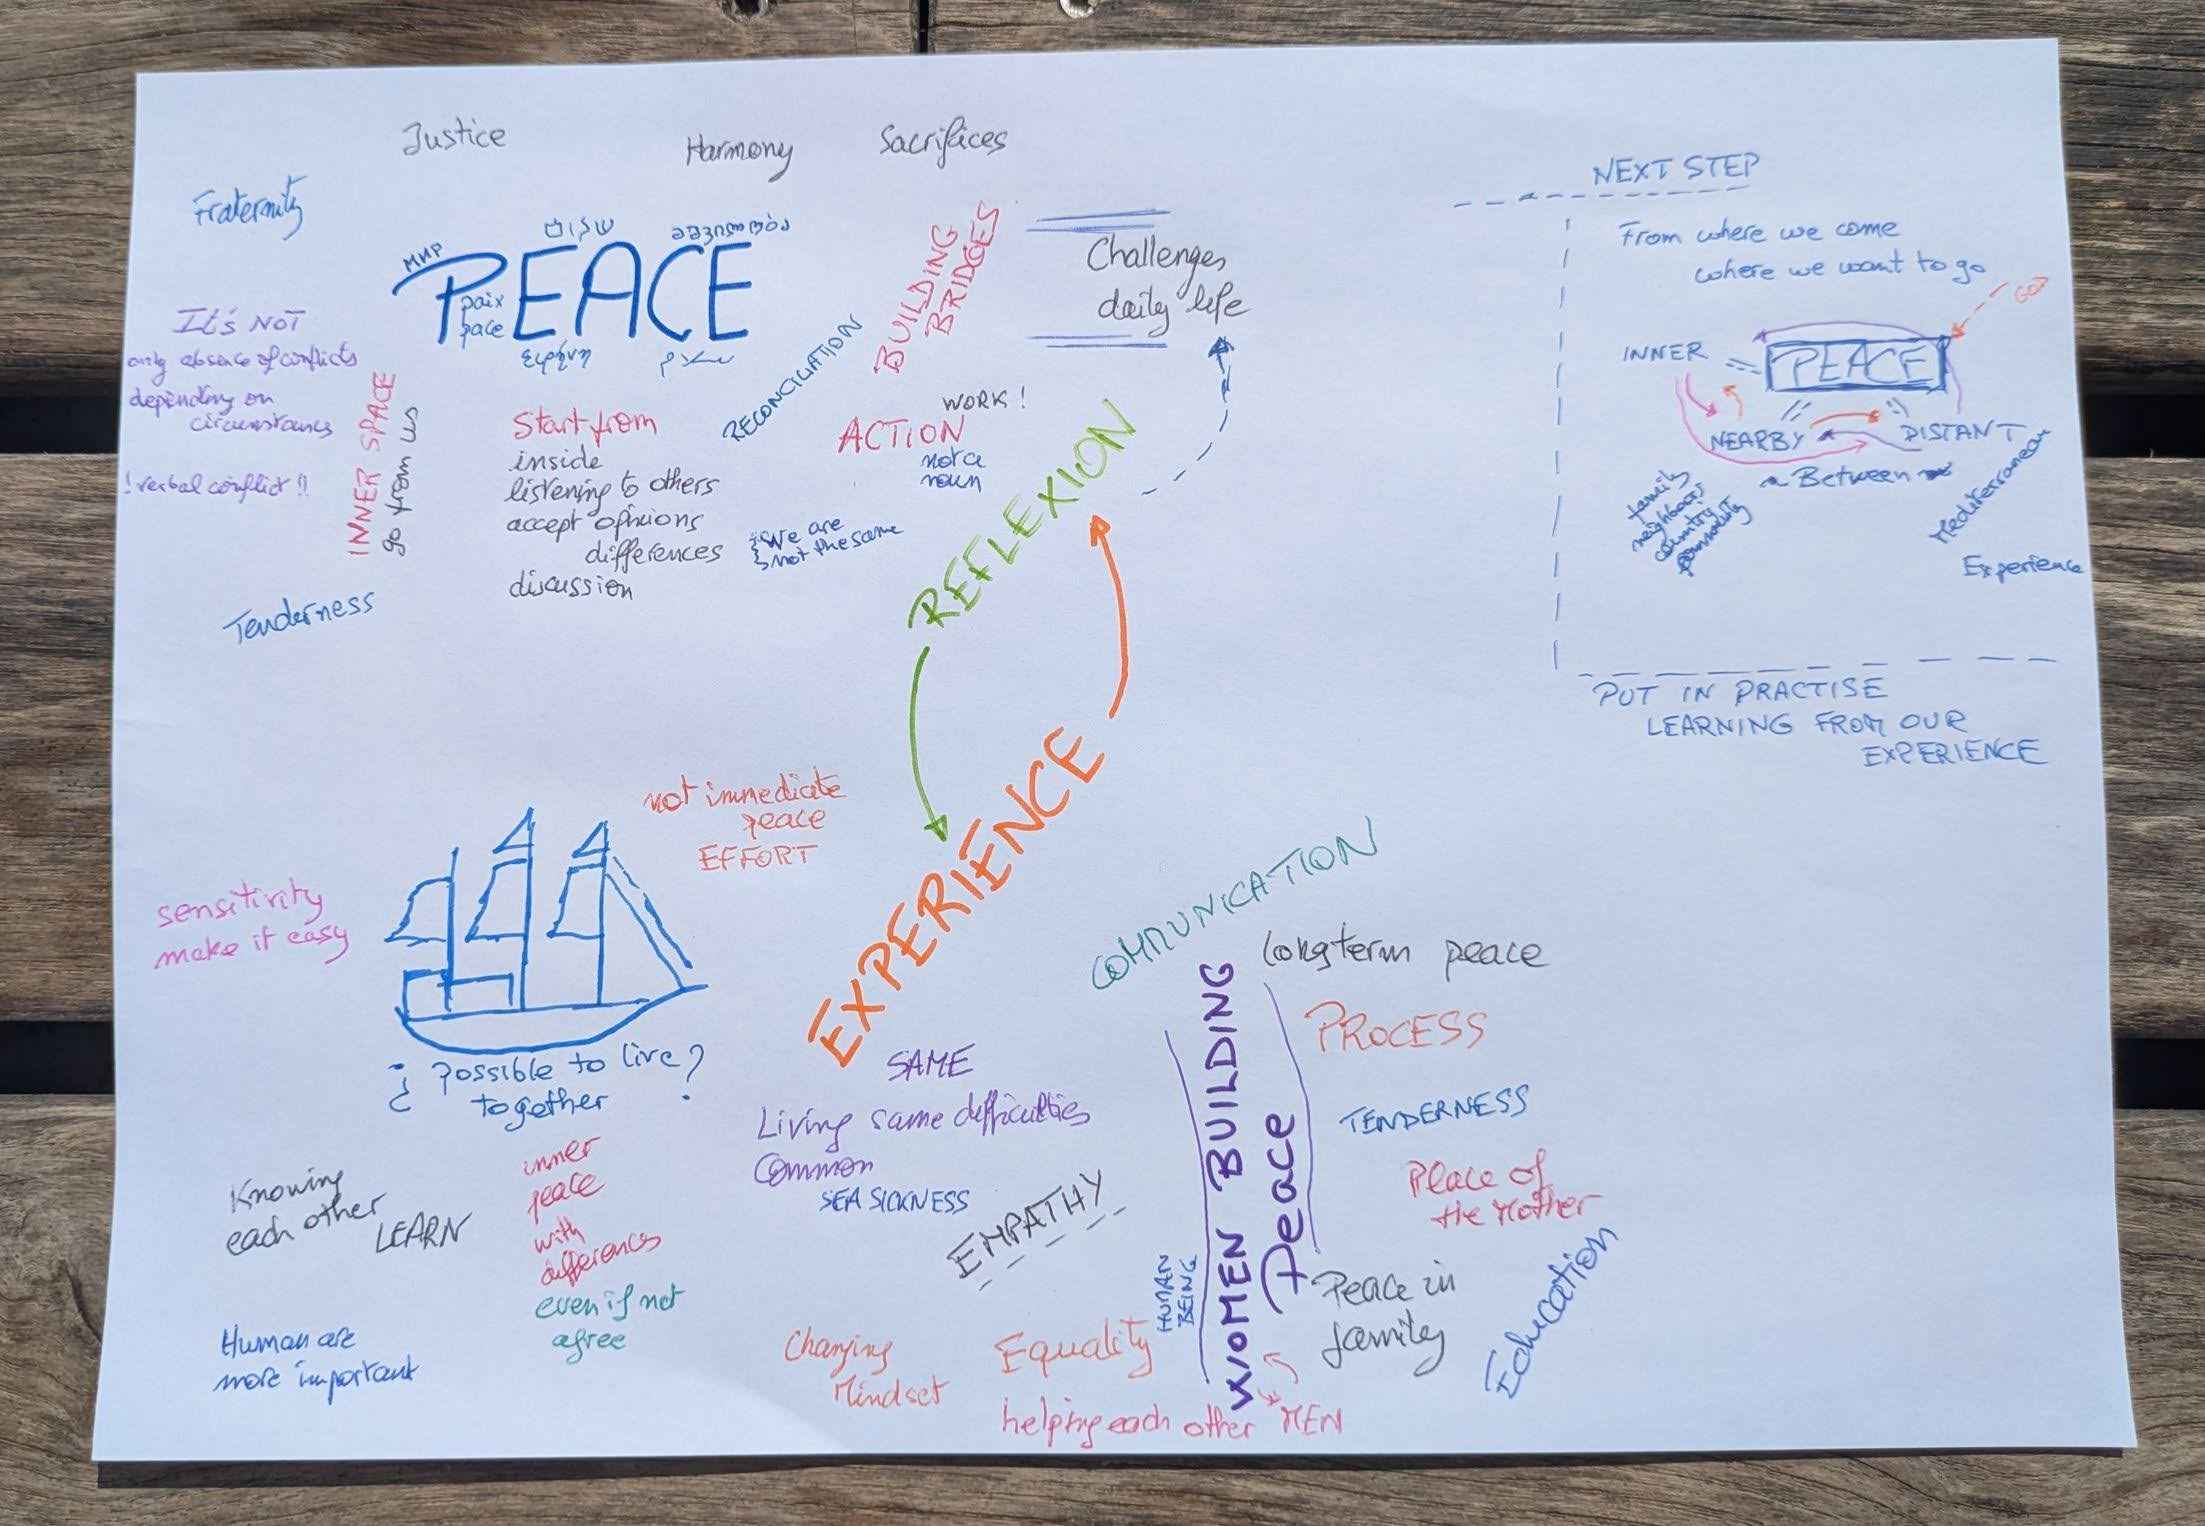 Justice
Harmony
Sacrifices
Fraternity
МИР
שלום
PEACE
paix
pace
ειρήνη
It's NOT
only absence of conflicts
depending on
circumstances
! verbal conflict !!
INNER SPACE
go from us
Tenderness
Start from
inside
listening to others
accept opinions
differences
discussion
We are
not the same
RECONCILIATION
BUILDING
BRIDGES
WORK!
ACTION
not a
noun
Challenges
daily life
REFLEXION
EXPERIENCE
NEXT STEP
From where we come
where we want to go
INNER
PEACE
NEARBY
DISTANT
Between
family
neighbors
country
Mediterranean
Experience
PUT IN PRACTISE
LEARNING FROM OUR
EXPERIENCE
not immediate
peace
EFFORT
sensitivity
make it easy
¿ Possible to live ?
together
Knowing
each other
LEARN
inner
peace
with
differences
even if not
agree
Human are
more important
SAME
Living same difficulties
Common
SEA SICKNESS
EMPATHY
Changing
Mindset
Equality
HUMAN
BEING
helping each other
MEN
COMMUNICATION
WOMEN BUILDING
Peace
Longterm peace
PROCESS
TENDERNESS
Place of
the Mother
Peace in
family
Education